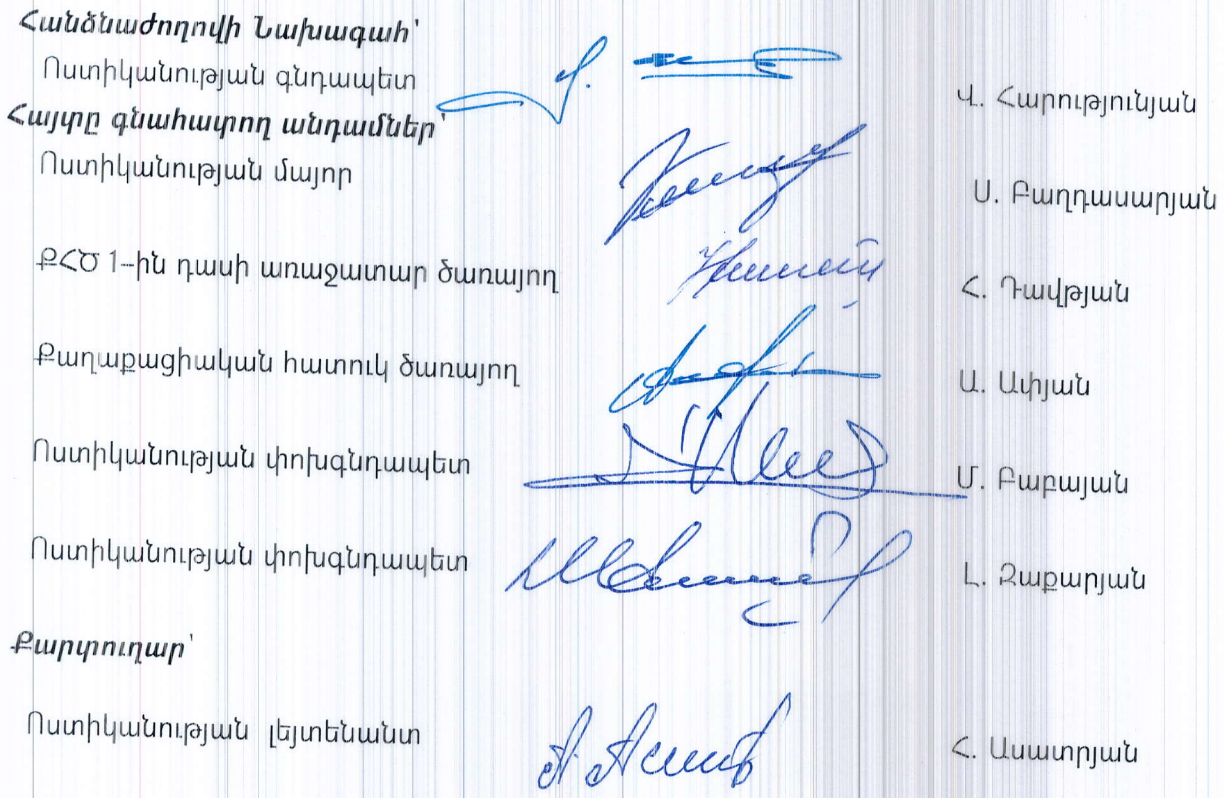 Հանձնաժողովի Նախագահ՝
Ոստիկանության գնդապետ Վ. Հարությունյան
Հայտը գնահատող անդամներ՝
Ոստիկանության մայոր Ս. Բաղդասարյան
ՔՀԾ 1-ին դասի առաջատար ծառայող Հ. Դավթյան
Քաղաքացիական հատուկ ծառայող Ա. Ափյան
Ոստիկանության փոխգնդապետ Մ. Բաբայան
Ոստիկանության փոխգնդապետ Լ. Զաքարյան
Քարտուղար՝
Ոստիկանության լեյտենանտ Հ. Ասատրյան